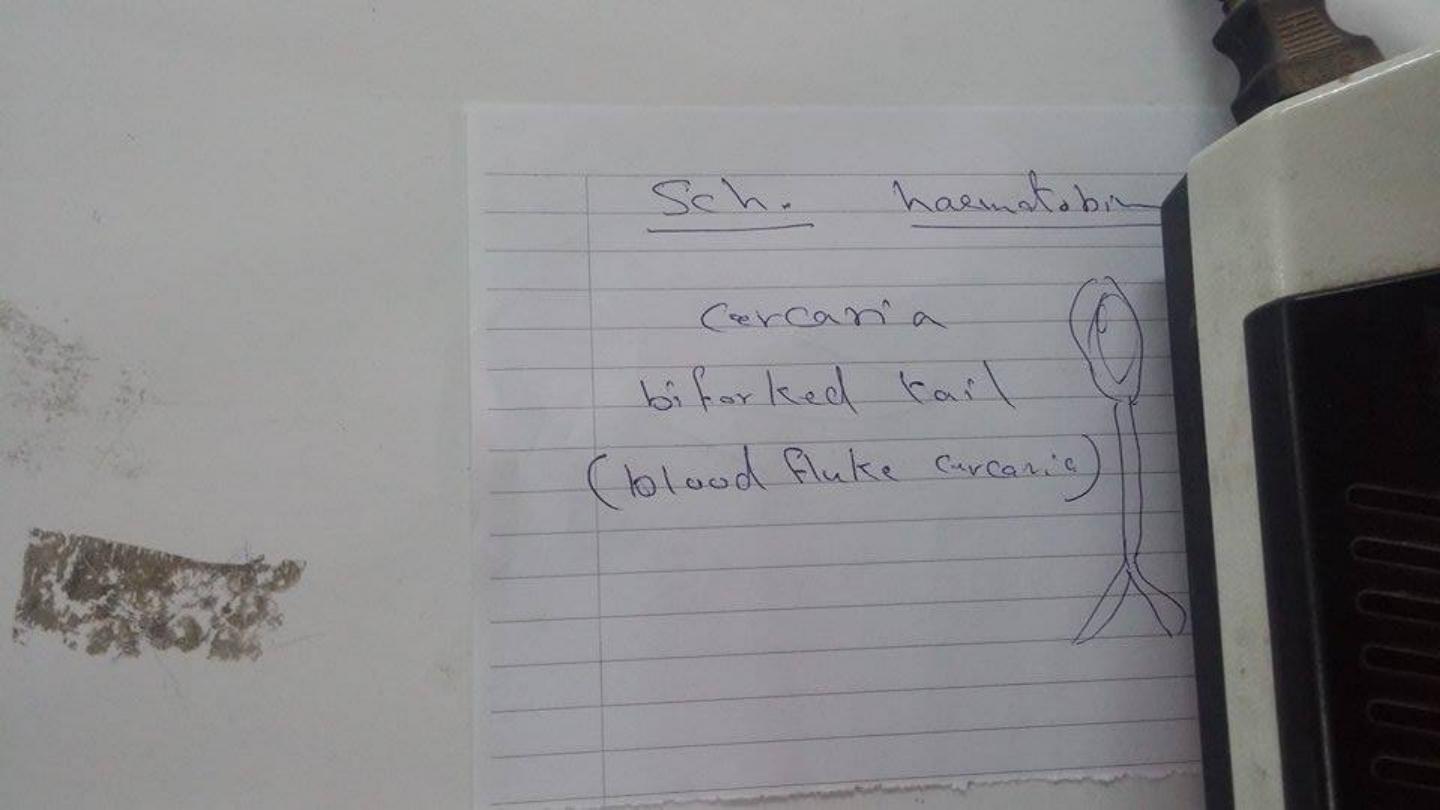 Sch. haematobium
cercaria
biforked tail
(blood fluke cercaria)